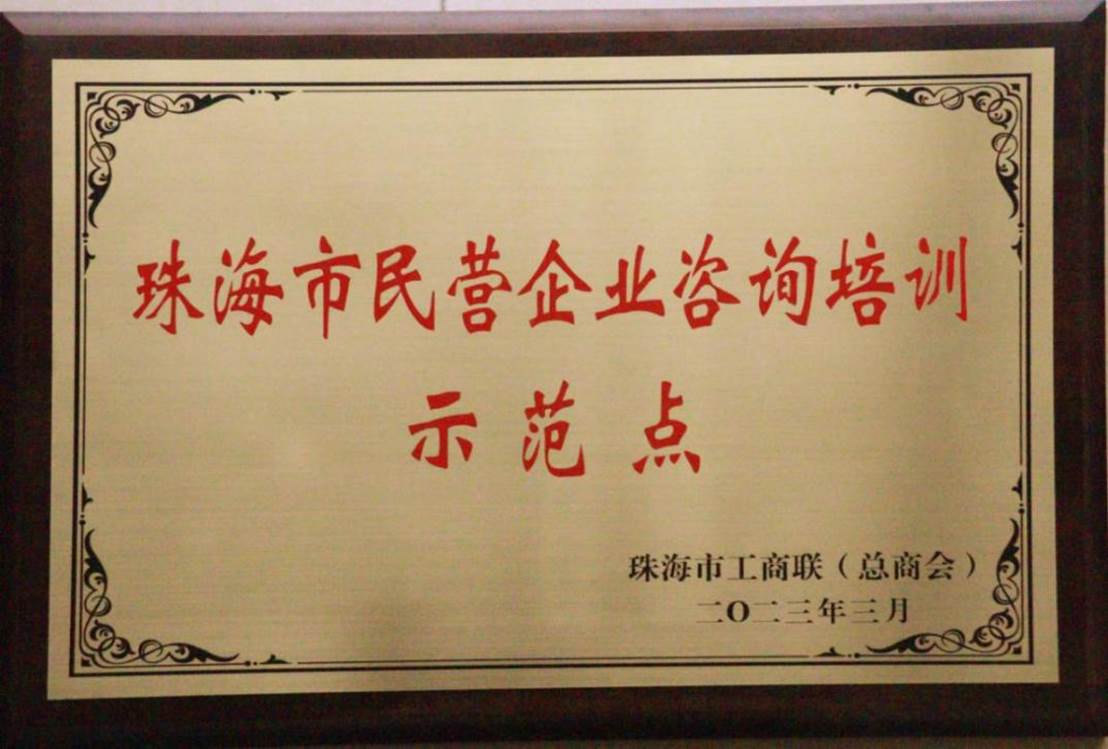 珠海市民营企业咨询培训
示范点
珠海市工商联（总商会）
二〇二三年三月